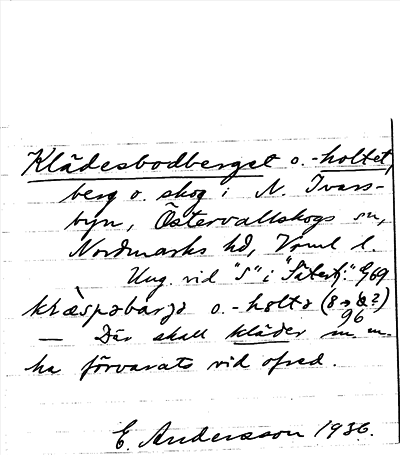 Klädesbodberget o. -holtet,
berg o. skog i N. Ivars-
byn, Östervallskogs sn,
Nordmarks hd, Värml l.
Ung. vid "S" i "Säterfj:" 969
klæspəbarjə o. -hɵltə (8 → ɵ?)
96
— Där skall kläder m m
ha förvarats vid ofred.
E. Andersson 1936.